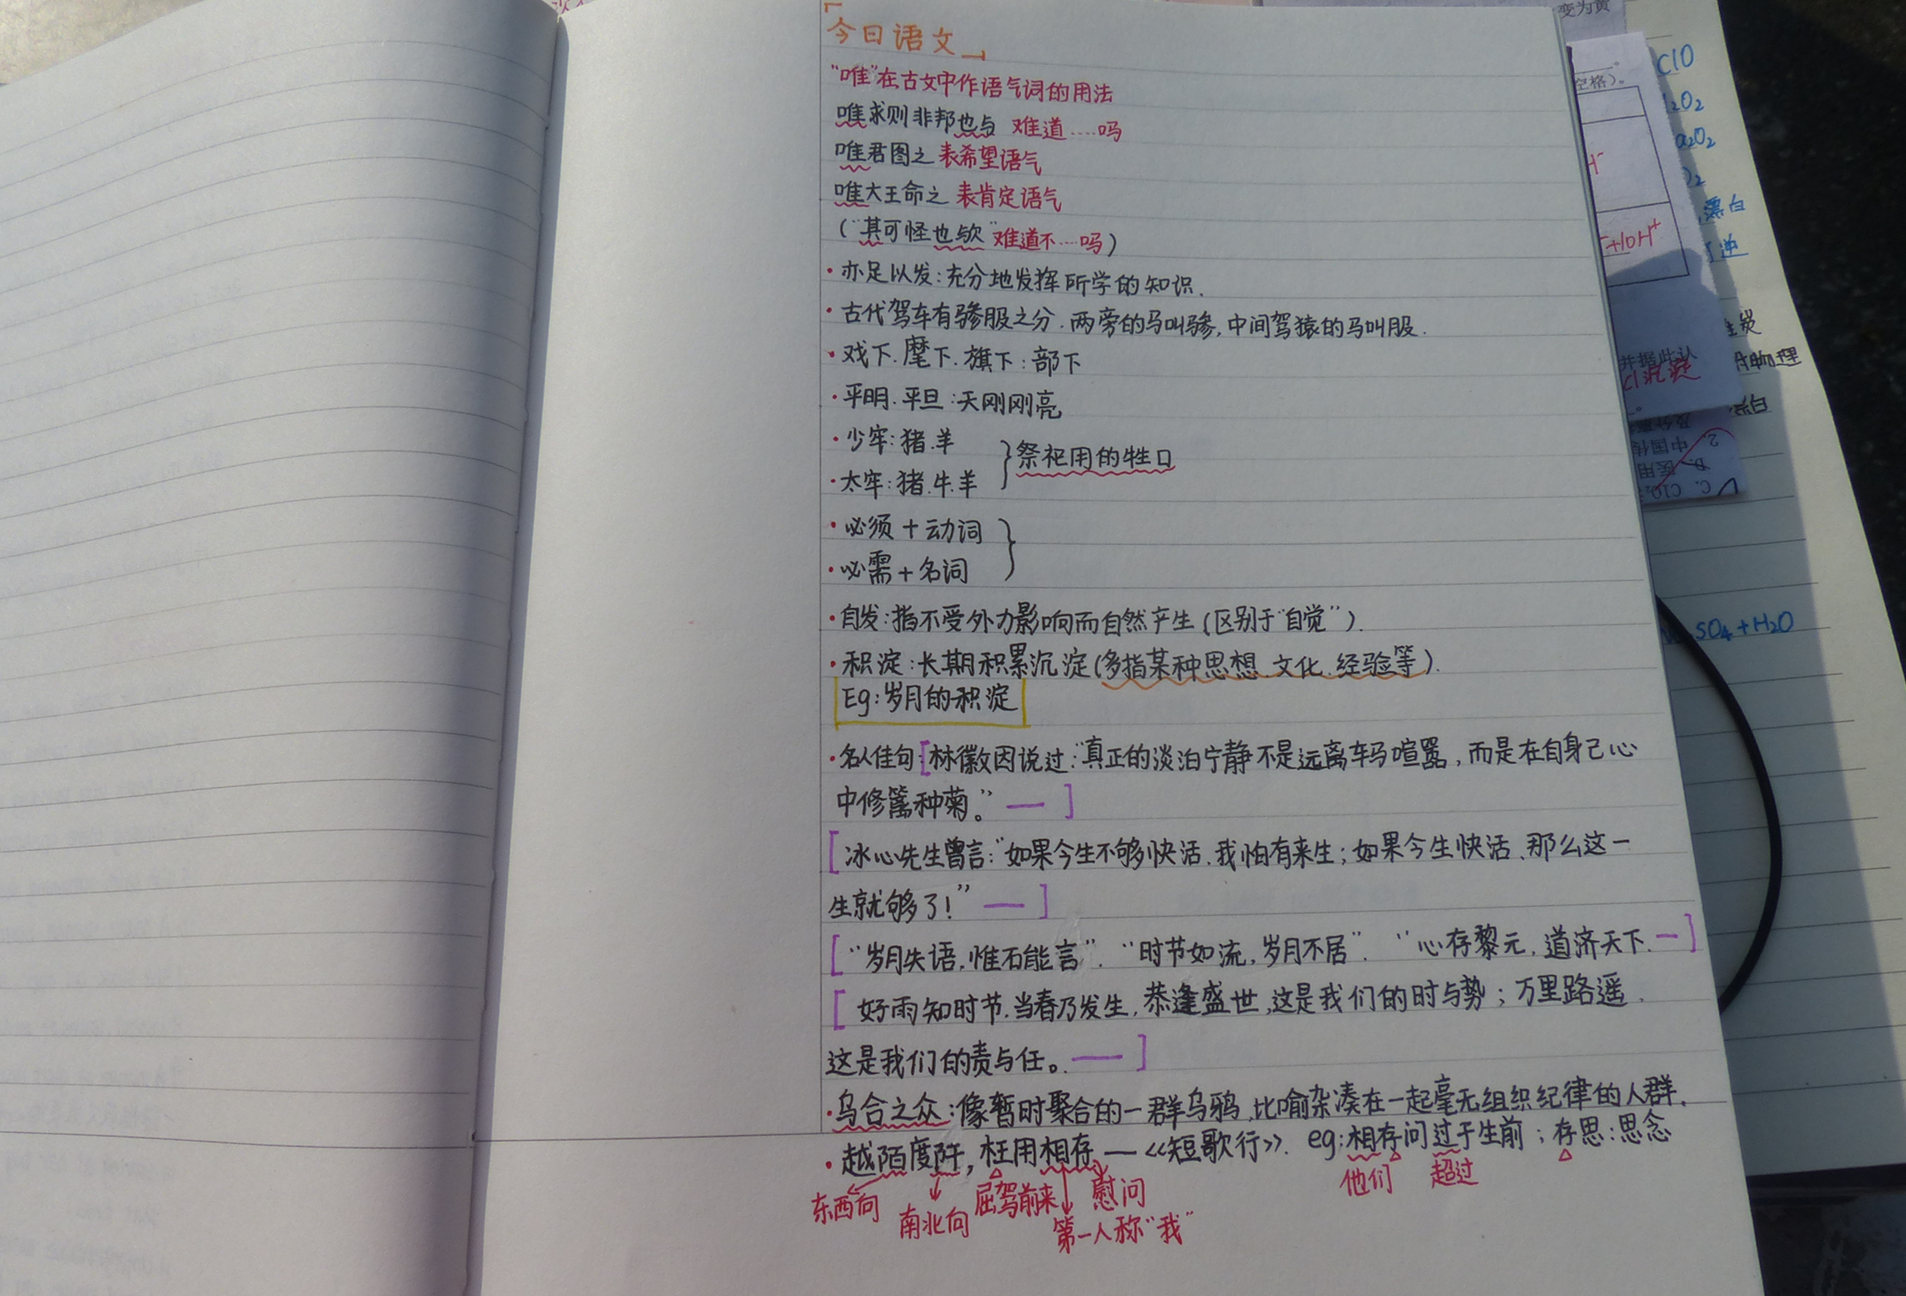 「今日语文」
“唯”在古文中作语气词的用法
唯求则非邦也与 难道……吗
唯君图之 表希望语气
唯大王命之 表肯定语气
(“其可怪也欤”难道不……吗)
·亦足以发:充分地发挥所学的知识.
·古代驾车有骖服之分.两旁的马叫骖,中间驾辕的马叫服.
·戏下.麾下.旗下:部下
·平明.平旦:天刚刚亮
·少牢:猪.羊
·太牢:猪.牛.羊
}祭祀用的牲口
·必须+动词
·必需+名词
·自发:指不受外力影响而自然产生(区别于“自觉”).
·积淀:长期积累沉淀(多指某种思想.文化.经验等).
Eg:岁月的积淀
·名人佳句:[林徽因说过:“真正的淡泊宁静不是远离车马喧嚣,而是在自身己心
中修篱种菊。”—]
[冰心先生曾言:“如果今生不够快活,我怕有来生;如果今生快活、那么这一
生就够了!”—]
[“岁月失语,惟石能言”.“时节如流,岁月不居”.“心存黎元,道济天下.—]
[好雨知时节.当春乃发生,恭逢盛世,这是我们的时与势;万里路遥.
这是我们的责与任。—]
·乌合之众:像暂时聚合的一群乌鸦.比喻杂凑在一起毫无组织纪律的人群.
·越陌度阡,枉用相存—《短歌行》. eg:相存问过于生前;存思:思念
东西向 南北向 屈驾前来 慰问 他们 超过
第一人称“我”
变为黄
空格)。
ClO
漂白
+10H⁺
并据此认
物理
漂白
SO₄+H₂O